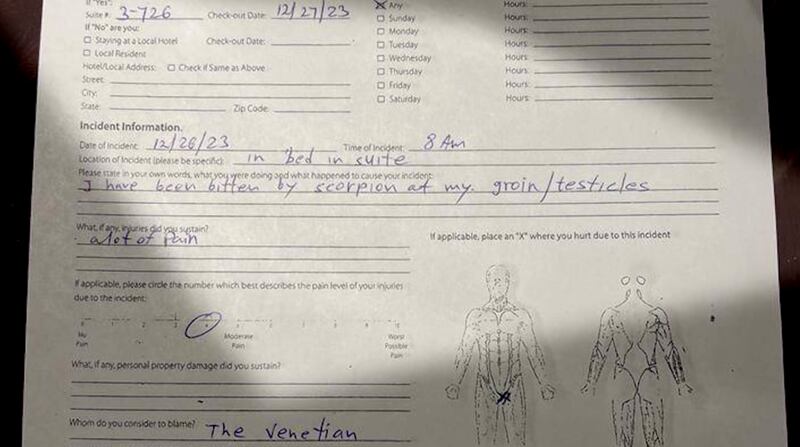 If "Yes":
Suite #: 3-726 Check-out Date: 12/27/23
If "No" are you:
☐ Staying at a Local Hotel Check-out Date:
☐ Local Resident
Hotel/Local Address: ☐ Check if Same as Above
Street:
City:
State: Zip Code:
☒ Any Hours:
☐ Sunday Hours:
☐ Monday Hours:
☐ Tuesday Hours:
☐ Wednesday Hours:
☐ Thursday Hours:
☐ Friday Hours:
☐ Saturday Hours:
Incident Information.
Date of Incident: 12/26/23 Time of Incident: 8 Am
Location of Incident (please be specific): in bed in suite
Please state in your own words, what you were doing and what happened to cause your incident:
I have been bitten by scorpion at my groin/testicles
What, if any, injuries did you sustain?
a lot of Pain
If applicable, please circle the number which best describes the pain level of your injuries
due to the incident:
0 1 2 3 4 10
No
Pain
Moderate
Pain
Worst
Possible
Pain
If applicable, place an "X" where you hurt due to this incident
What, if any, personal property damage did you sustain?
Whom do you consider to blame? The Venetian